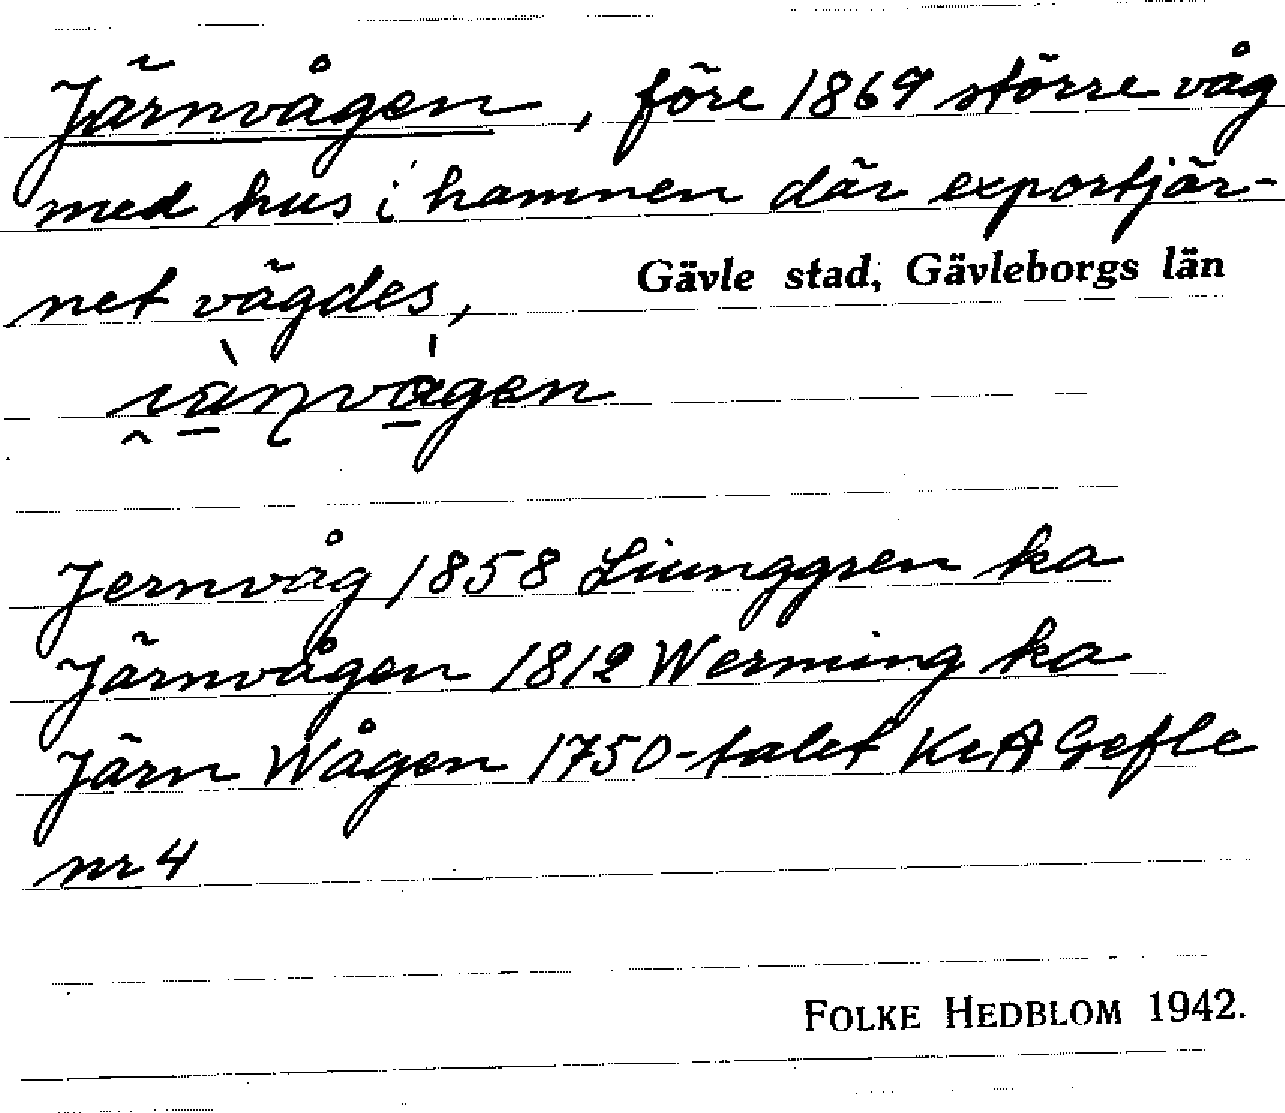 Järnvågen, före 1869 större våg
med hus i hamnen där exportjär-
net vägdes,
Gävle stad, Gävleborgs län
Jernvåg 1858 Ljunggren ka
Järnvågen 1812 Werming ka
Järn Wågen 1750-talet KrA Gefle
nr 4
FOLKE HEDBLOM 1942.